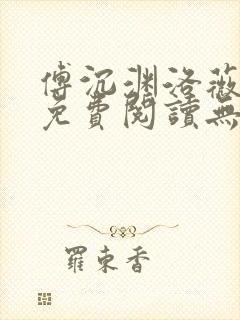 傅沉渊洛薇
免費閱讀無
羅東香